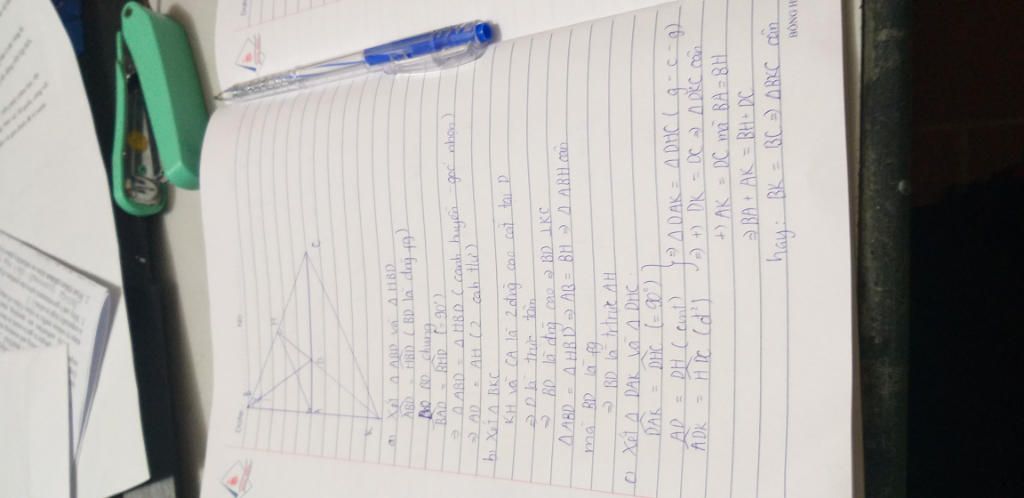 B
H
D
A
C
K
a) Xét Δ ABD và Δ HBD
ABD = HBD (BD là đường fg)
BD chung
BAD = BHD (= 90°)
⇒ Δ ABD = Δ HBD (cạnh huyền - góc nhọn)
⇒ AD = AH (2 cạnh t/ư)
b) Xét Δ BKC
KH và CA là 2 đường cao cắt tại D
⇒ D là trực tâm
⇒ BD là đường cao ⇒ BD ⊥ KC
Δ ABD = Δ HBD ⇒ AB = BH ⇒ Δ ABH cân
mà BD là fg
⇒ BD là tr trực AH
c) Xét Δ DAK và Δ DHC
DAK = DHC (= 90°)
AD = DH (cmt)
ADK = HDC (đ²)
⇒ Δ DAK = Δ DHC (g - c - g)
⇒ +) DK = DC ⇒ Δ DKC cân
+) AK = DC mà BA = BH
⇒ BA + AK = BH + DC
hay: BK = BC ⇒ Δ BKC cân